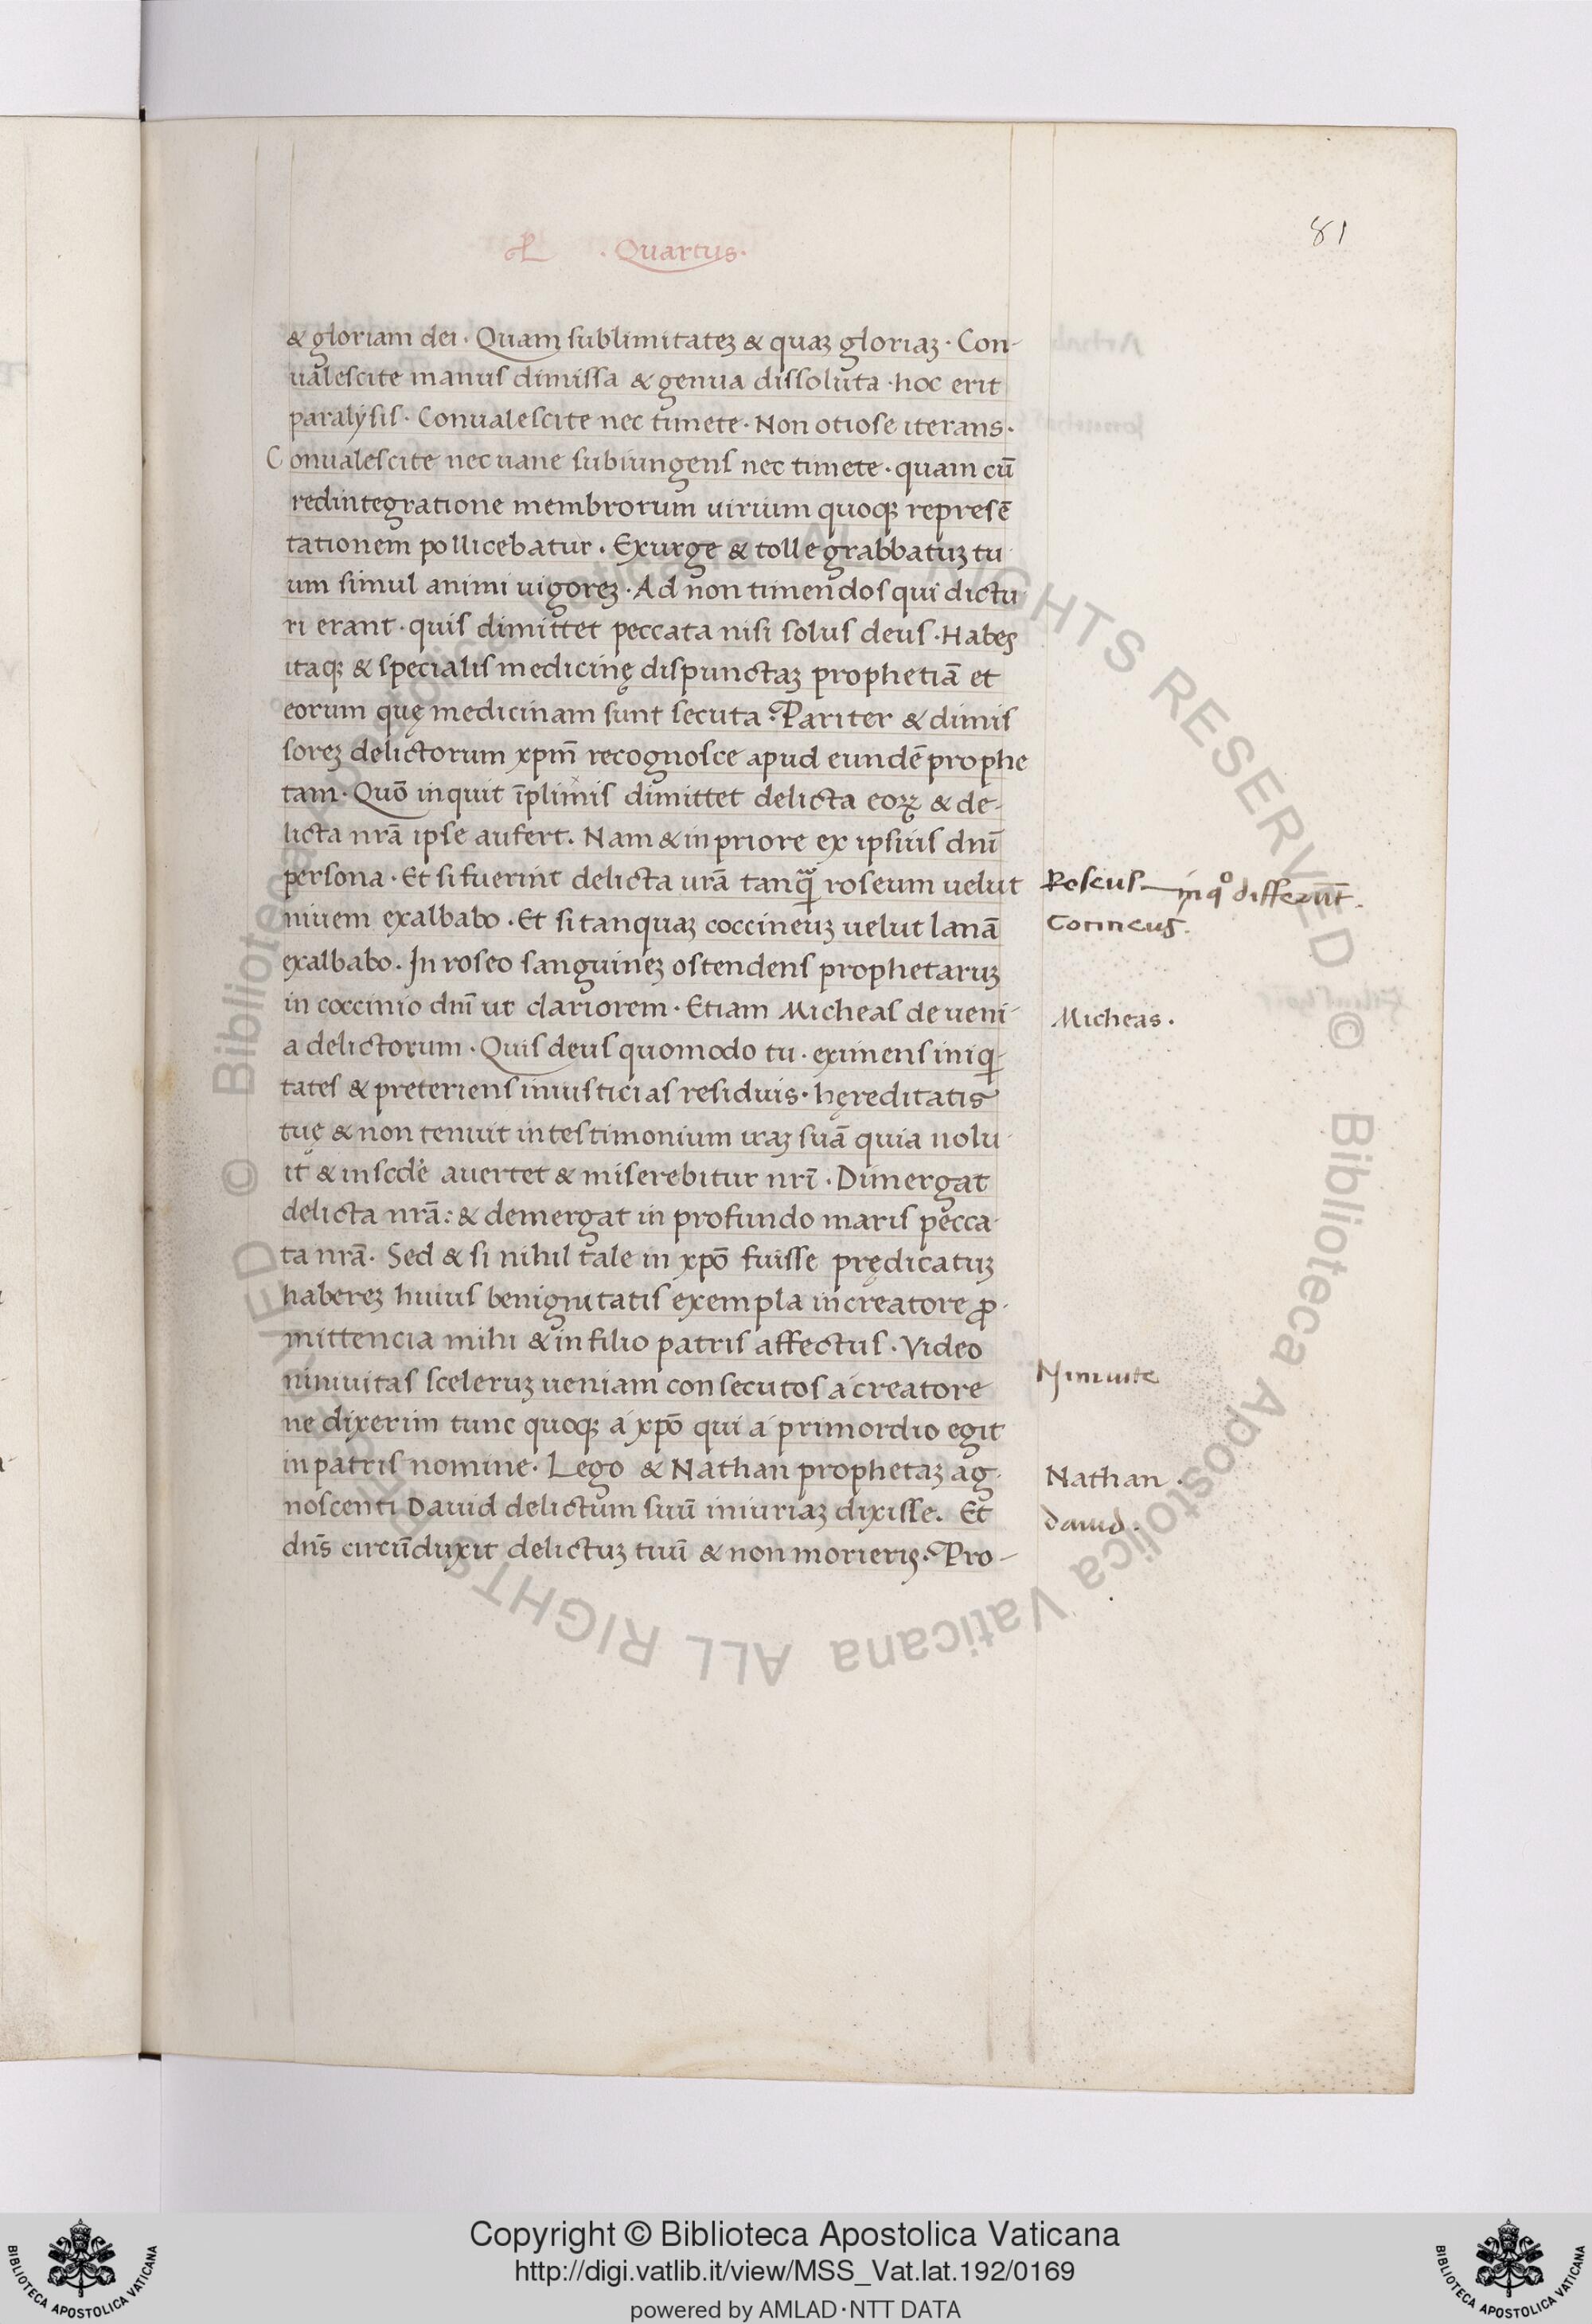 81
. Quartus .
& gloriam dei · Quam sublimitateꝫ & quaꝫ gloriaꝫ · Con-
ualescite manus dimissa & genua dissoluta · hoc erit
paralysis · Conualescite nec timete · Non otiose iterans ·
Conualescite nec uane subiungens nec timete · quam cū
redintegratione membrorum uirium quoqꝫ represē
tationem pollicebatur . Exurge & tolle grabbatuꝫ tu
um simul animi uigoreꝫ · Ad non timendos qui dictu
ri erant · quis dimittet peccata nisi solus deus · Habes
itaqꝫ & specialis medicinę dispunctaꝫ prophetiā et
eorum quę medicinam sunt secuta : Pariter & dimis
soreꝫ delictorum xpm̄ recognosce apud eundē prophe
tam · Quō inquit īplimis dimittet delicta eoꝝ & de-
licta nrā ipse aufert . Nam & in priore ex ipsius dnī
persona · Et si fuerint delicta urā tanꝗ̃ roseum uelut
niuem exalbabo · Et si tanquaꝫ coccineuꝫ uelut lanā
exalbabo . In roseo sanguineꝫ ostendens prophetaruꝫ
in coccinio dnī ut clariorem · Etiam Micheas de ueni-
a delictorum · Quis deus quomodo tu · eximens iniꝗ-
tates & preteriens iniusticias residuis · hęreditatis
tuę & non tenuit in testimonium iraꝫ suā quia uolu
it & miscdē auertet & miserebitur nrī . Dimergat
delicta nrā : & demergat in profundo maris pecca-
ta nrā · Sed & si nihil tale in xpō fuisse prędicatuꝫ
habereꝫ huius benignitatis exempla in creatore ꝓ-
mittencia mihi & in filio patris affectus · Video
niniuitas sceleruꝫ ueniam consecutos a creatore
ne dixerim tunc quoqꝫ a xpō qui a primordio egit
in patris nomine · Lego & Nathan prophetaꝫ ag-
noscenti Dauid delictum suū iniuriaꝫ dixisse . Et
dn̄s circūduxit delictuꝫ tuū & non morieris : Pro-
Roseus — in qº differūt .
Micheas .
Niniuite
Nathan .
dauid .
© Biblioteca Apostolica Vaticana ALL RIGHTS RESERVED © Biblioteca Apostolica Vaticana ALL RIGHTS RESERVED
Copyright © Biblioteca Apostolica Vaticana
http://digi.vatlib.it/view/MSS_Vat.lat.192/0169
powered by AMLAD·NTT DATA
BIBLIOTECA APOSTOLICA VATICANA
BIBLIOTECA APOSTOLICA VATICANA